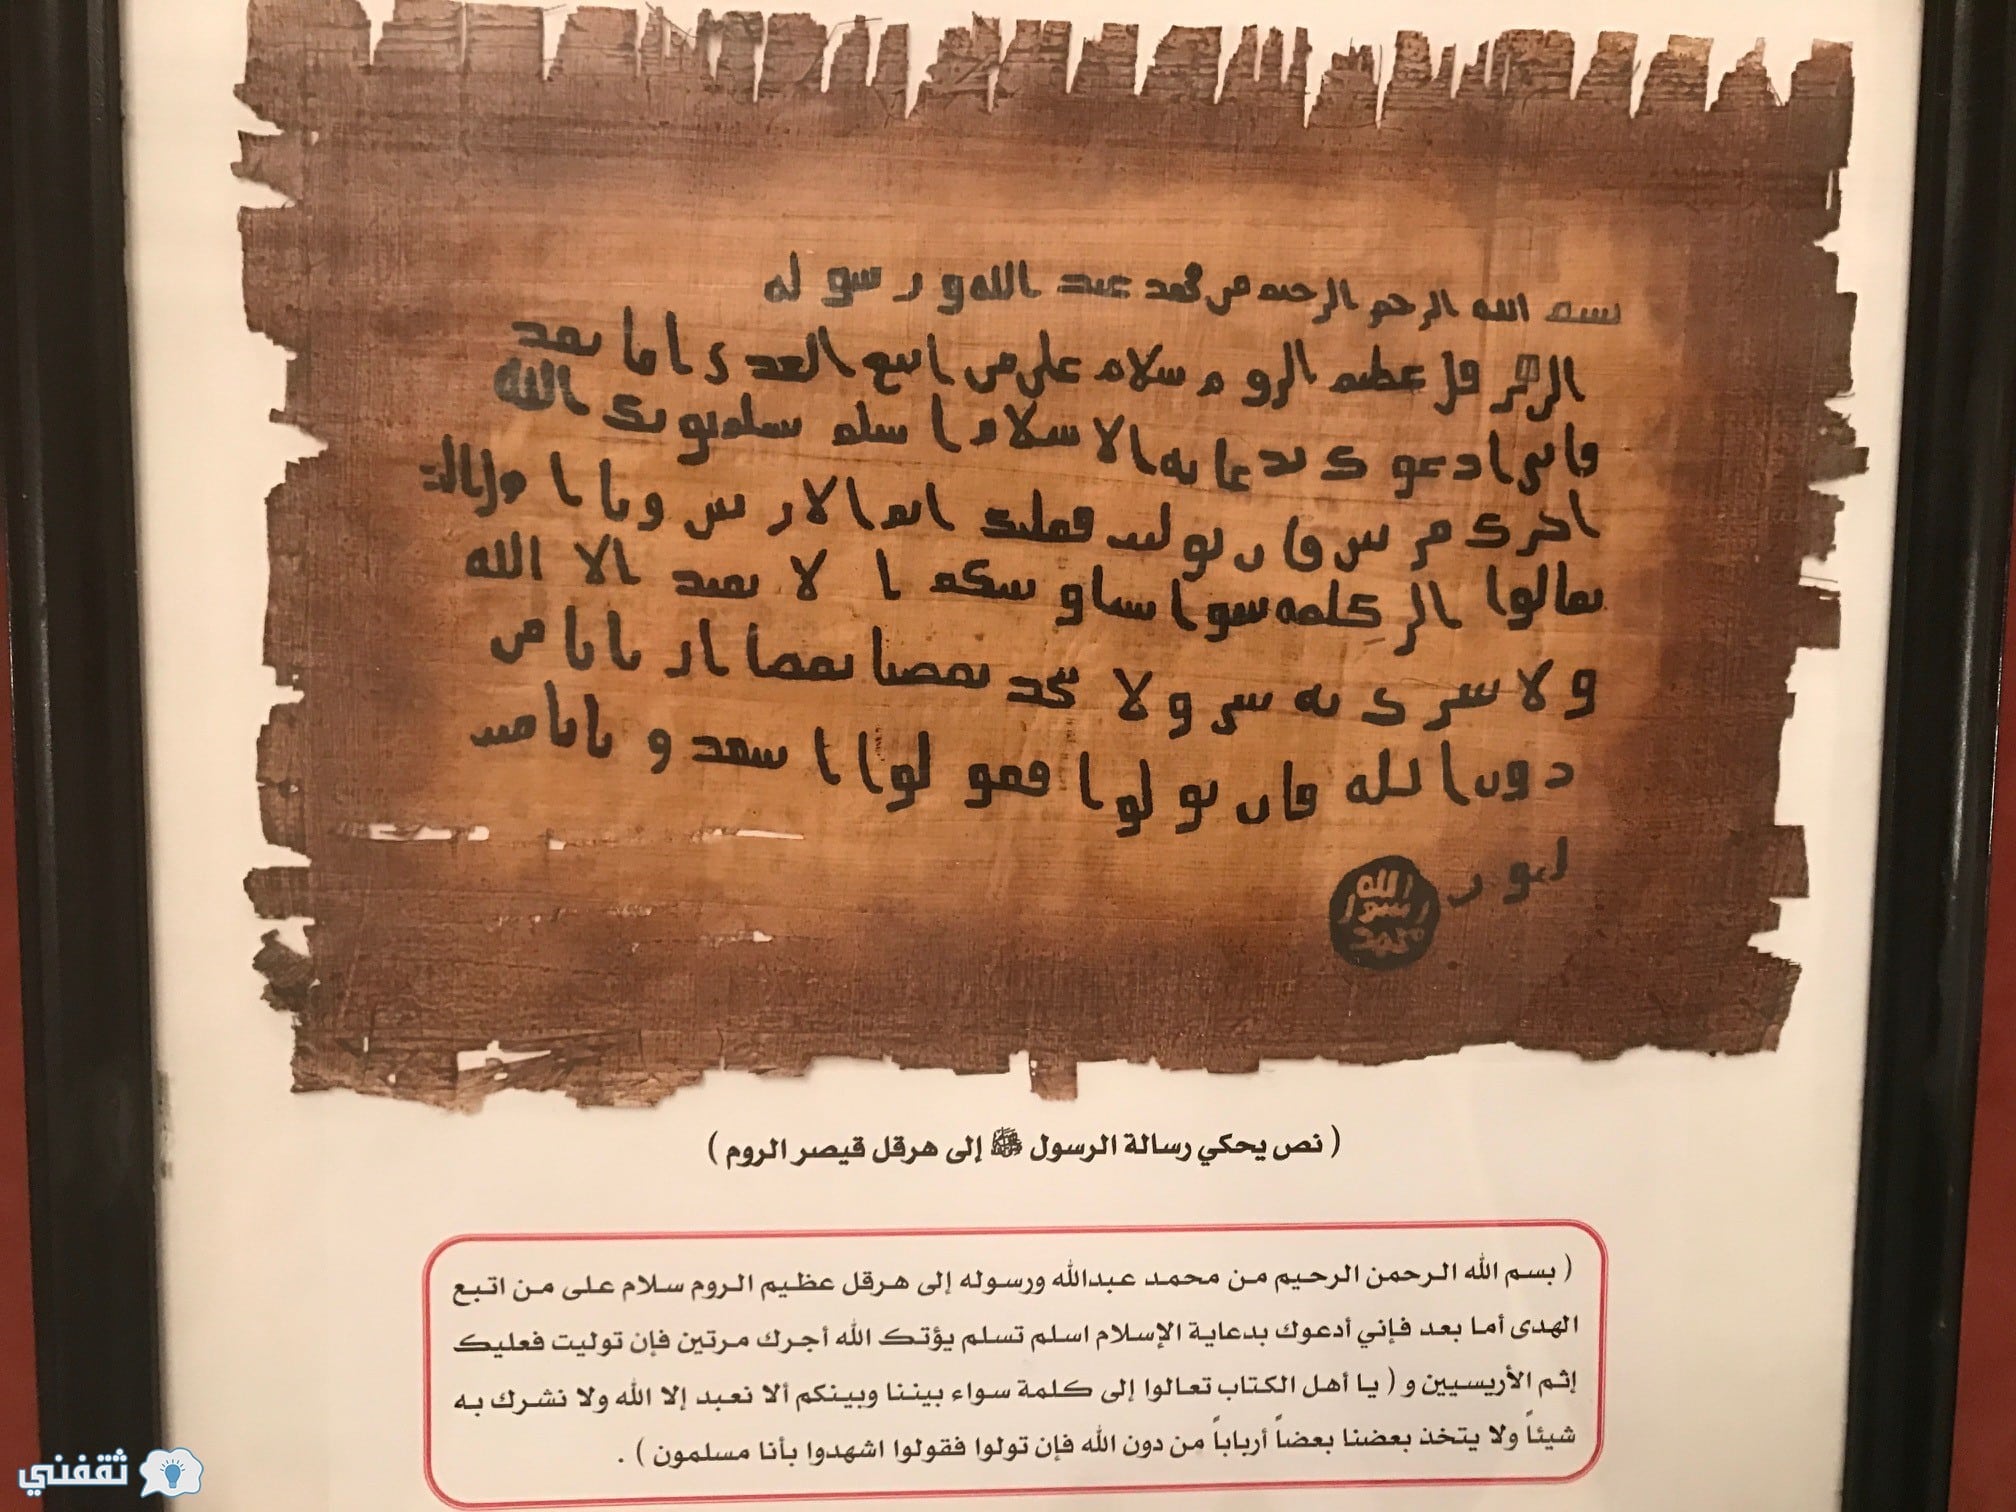 بسم الله الرحمن الرحيم من محمد عبد الله و رسوله
الى هرقل عظيم الروم سلام على من اتبع الهدى اما بعد
فاني ادعوك بدعاية الاسلام اسلم تسلم يوتك الله
اجرك مرتين فان توليت فعليك اثم الاريسين ويا ا
تعالوا الى كلمة سوا بيننا وبينكم ا لا نعبد الا الله
ولا نشرك به شيا ولا يتخذ بعضنا بعضا اربابا من
دون الله فان تولوا فقولوا اشهدوا بانا مس
لمون
الله
رسول
محمد
( نص يحكي رسالة الرسول ﷺ إلى هرقل قيصر الروم )
( بسم الله الرحمن الرحيم من محمد عبدالله ورسوله إلى هرقل عظيم الروم سلام على من اتبع
الهدى أما بعد فإني أدعوك بدعاية الإسلام اسلم تسلم يؤتك الله أجرك مرتين فإن توليت فعليك
إثم الأريسيين و ( يا أهل الكتاب تعالوا إلى كلمة سواء بيننا وبينكم ألا نعبد إلا الله ولا نشرك به
شيئاً ولا يتخذ بعضنا بعضاً أرباباً من دون الله فإن تولوا فقولوا اشهدوا بأنا مسلمون ) .
ثقفني